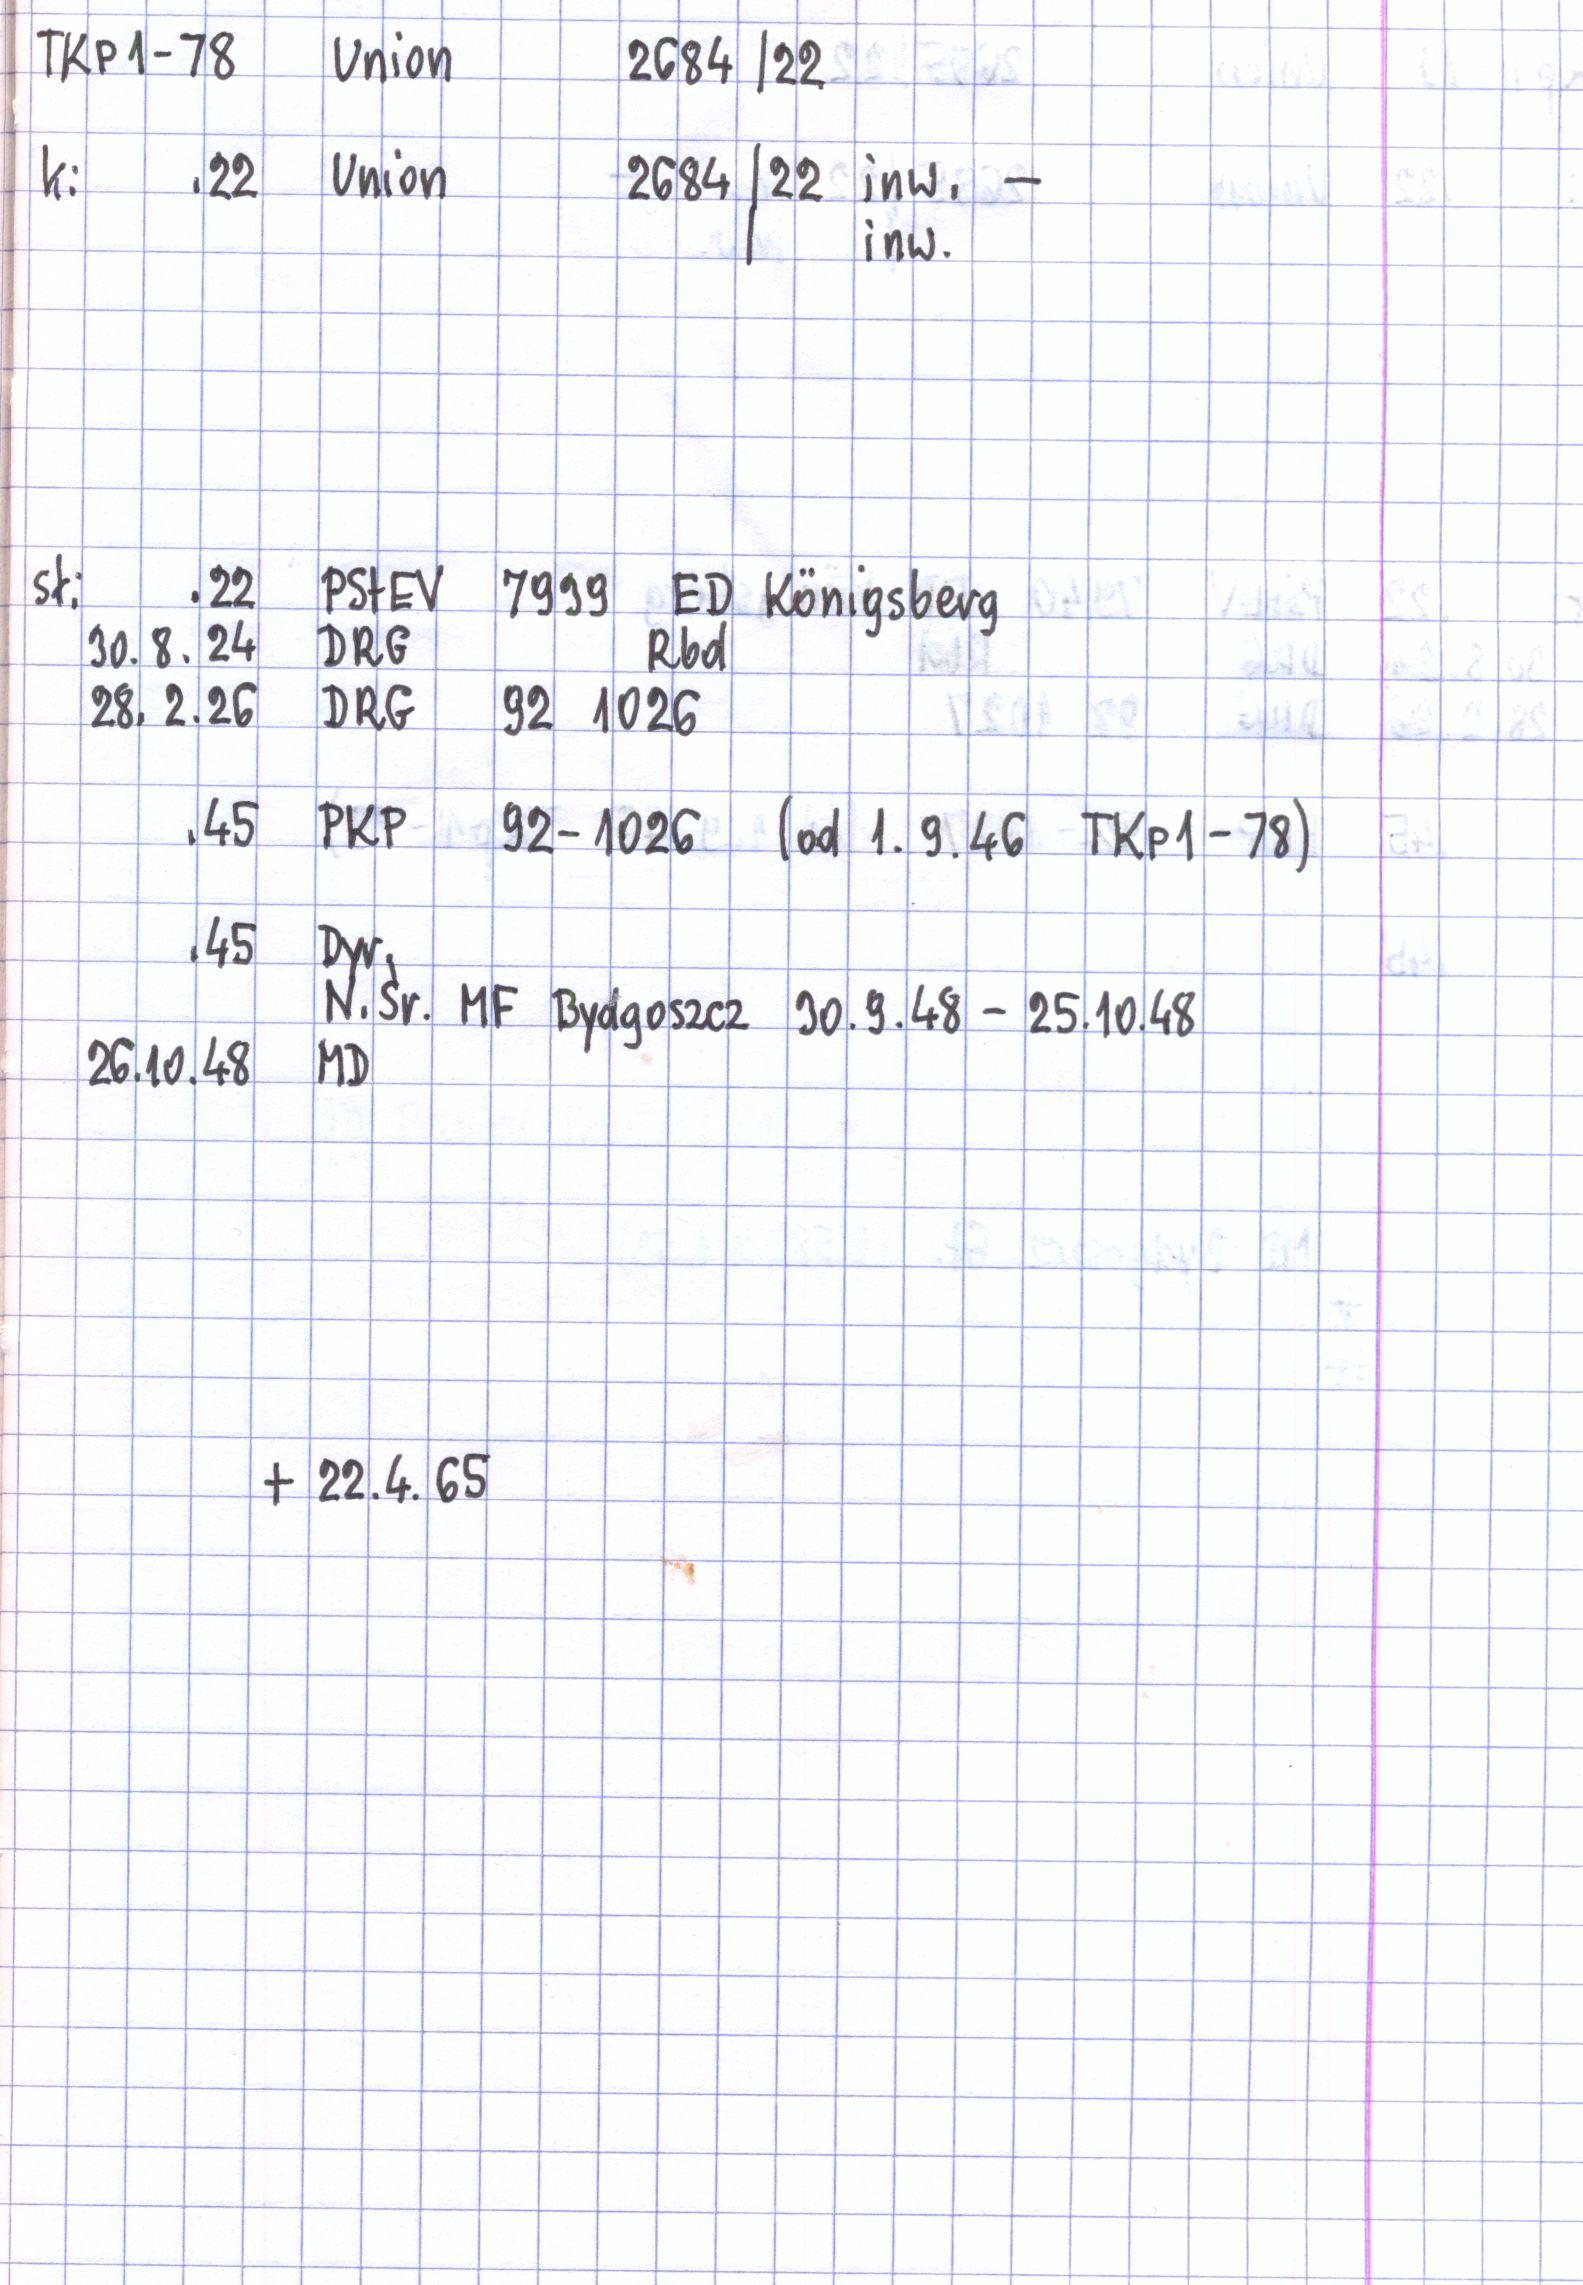 TKp1-78 Union 2684/22
k: .22 Union 2684/22 inw. -
/ inw.
st: .22 PStEV 7999 ED Königsberg
30.8.24 DRG Rbd
28.2.26 DRG 92 1026
.45 PKP 92-1026 (od 1.9.46 TKp1-78)
.45 Dyr.
N.Śr. MF Bydgoszcz 30.9.48 - 25.10.48
26.10.48 MD
+ 22.4.65